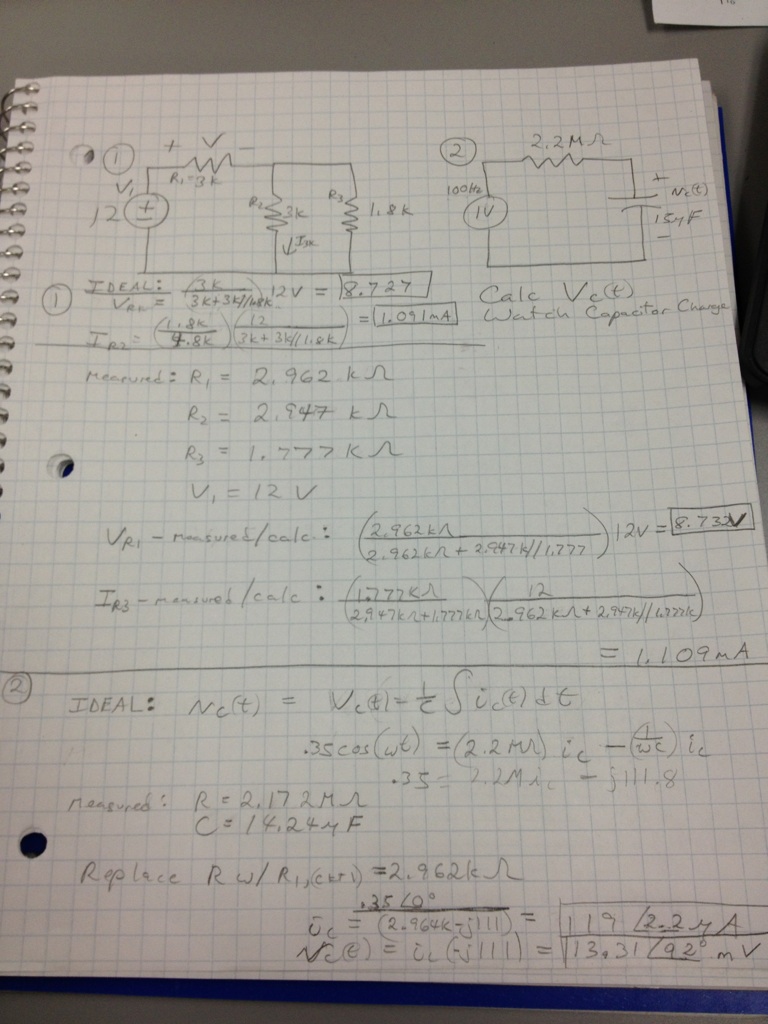 ① + V −
R₁=3k
V₁
12
+
−
R₂ 3k
↓I3k
R₃ 1.8k
② 2.2MΩ
100Hz
1V
+
Nc(t)
15μF
−
① IDEAL: VR1 = (3k / 3k+3k//1.8k) 12V = 8.727
IR2 = (1.8k / 4.8k)(12 / 3k+3k//1.8k) = 1.091mA
Calc Vc(t)
Watch Capacitor Charge
measured: R₁ = 2.962 kΩ
R₂ = 2.947 kΩ
R₃ = 1.777 kΩ
V₁ = 12 V
VR1 - measured/calc.: (2.962kΩ / 2.962kΩ + 2.947k//1.777) 12V = 8.732V
IR3 - measured/calc: (1.777kΩ / 2.947kΩ+1.777kΩ)(12 / 2.962kΩ + 2.947k//1.777k)
= 1.109mA
② IDEAL: Nc(t) = Vc(t) = 1/C ∫ ic(t) dt
.35cos(ωt) = (2.2MΩ) ic − (1/ωC) ic
.35 = 2.2M ic − j111.8
measured: R = 2.172MΩ
C = 14.24μF
Replace R w/ R1,(ckt1) = 2.962kΩ
ic = .35∠0° / (2.964k−j111) = 119∠2.2 μA
Nc(t) = ic(−j111) = 13.31∠92° mV